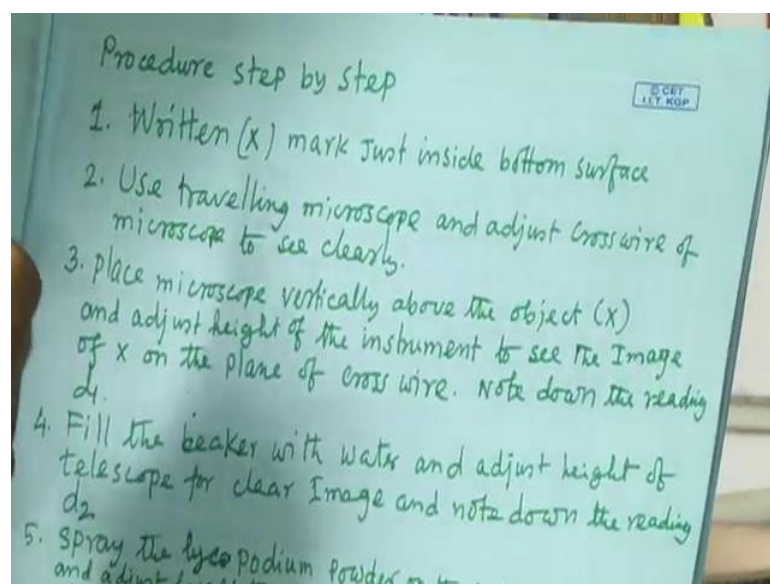 Procedure step by step
© CET
I.I.T. KGP
1. Written (x) mark Just inside bottom surface
2. Use travelling microscope and adjust Crosswire of
microscope to see clearly.
3. place microscope vertically above the object (x)
and adjust height of the instrument to see the Image
of x on the plane of cross wire. Note down the reading
d1.
4. Fill the beaker with water and adjust height of
telescope for clear Image and note down the reading
d2
5. Spray the lycopodium Powder
and adjust